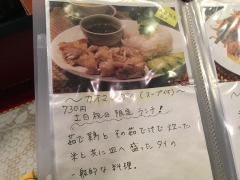 〜カオマンガイ(スープ付)〜
730円
土日祝日限定ランチ!
茹で鶏とその茹で汁で炊いた
米と共に皿へ盛ったタイの
一般的な料理。